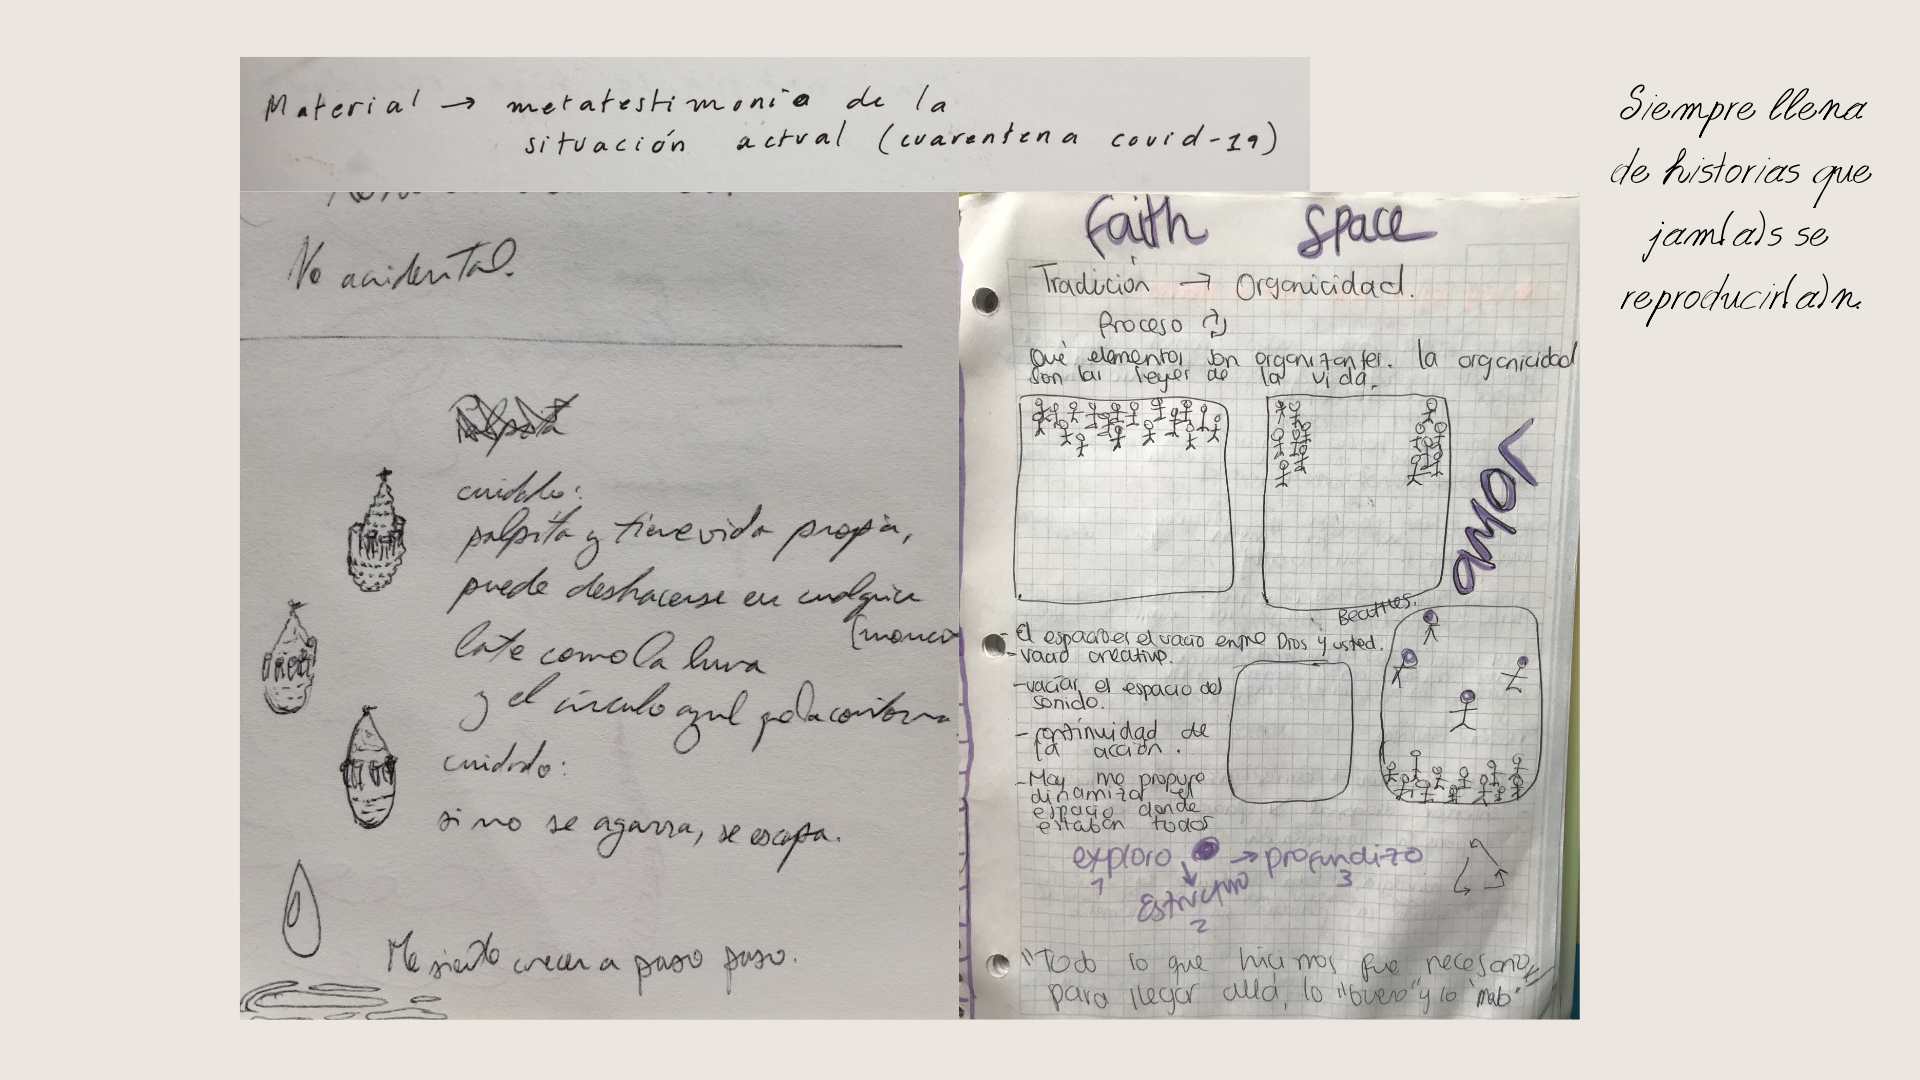 Material → metatestimonio de la
situación actual (cuarentena covid-19)
No accidental.
cuidado:
palpita y tiene vida propia,
puede deshacerse en cualquier
(momen
late como la luna
y el círculo azul que la contorna
cuidado:
si no se agarra, se escapa.
Me siento crecer a paso paso.
Faith Space
Tradición → Organicidad.
Proceso
Qué elementos son organizantes. la organicidad
son las leyes de la vida.
amor
Beatties.
- El espacio es el vacío entre Dios y usted.
- vacío creativo.
- vaciar el espacio del
sonido.
- continuidad de
la acción.
- May me propuso
dinamizar el
espacio donde
estaban todos
exploro → profundizo
1 3
Estructuro
2
"Todo lo que hicimos fue necesario
para llegar allá, lo "bueno" y lo "malo"
Siempre llena
de historias que
jam(a)s se
reproducir(a)n.